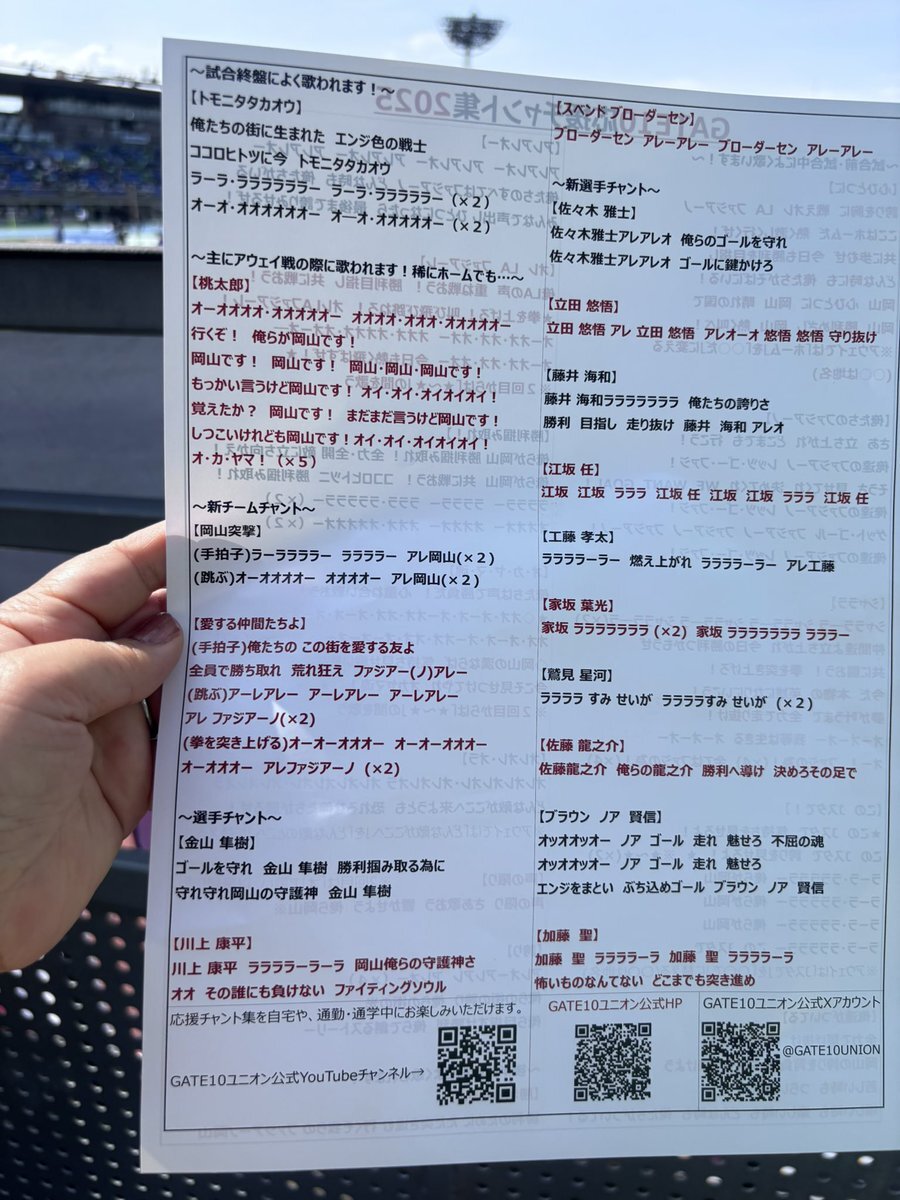 ～試合終盤によく歌われます！～
【トモニタタカオウ】
俺たちの街に生まれた エンジ色の戦士
ココロヒトツに今 トモニタタカオウ
ラーラ・ララララララー ラーラ・ララララララー (×２)
オーオ・オオオオオオー オーオ・オオオオオー (×２)
～主にアウェイ戦の際に歌われます！稀にホームでも…～
【桃太郎】
オーオオオオ・オオオオオー オオオオ・オオオ・オオオオオー
行くぞ！ 俺らが岡山です！
岡山です！ 岡山です！ 岡山・岡山・岡山です！
もっかい言うけど岡山です！ オイ・オイ・オイオイオイ！
覚えたか？ 岡山です！ まだまだ言うけど岡山です！
しつこいけれども岡山です！オイ・オイ・オイオイオイ！
オ・カ・ヤマ！ (×５)
～新チームチャント～
【岡山突撃】
(手拍子)ラーララララー ララララー アレ岡山(×２)
(跳ぶ)オーオオオオー オオオオー アレ岡山(×２)
【愛する仲間たちよ】
(手拍子)俺たちの この街を愛する友よ
全員で勝ち取れ 荒れ狂え ファジアー(ノ)アレー
(跳ぶ)アーレアレー アーレアレー アーレアレー
アレ ファジアーノ(×2)
(拳を突き上げる)オーオーオオオー オーオーオオオー
オーオオオー アレファジアーノ (×2)
～選手チャント～
【金山 隼樹】
ゴールを守れ 金山 隼樹 勝利掴み取る為に
守れ守れ岡山の守護神 金山 隼樹
【川上 康平】
川上 康平 ララララーラーラ 岡山俺らの守護神さ
オオ その誰にも負けない ファイティングソウル
【スベンド ブローダーセン】
ブローダーセン アレーアレー ブローダーセン アレーアレー
～新選手チャント～
【佐々木 雅士】
佐々木雅士アレアレオ 俺らのゴールを守れ
佐々木雅士アレアレオ ゴールに鍵かけろ
【立田 悠悟】
立田 悠悟 アレ 立田 悠悟 アレオーオ 悠悟 悠悟 守り抜け
【藤井 海和】
藤井 海和ララララララララ 俺たちの誇りさ
勝利 目指し 走り抜け 藤井 海和 アレオ
【江坂 任】
江坂 江坂 ラララ 江坂 任 江坂 江坂 ラララ 江坂 任
【工藤 孝太】
ララララーラー 燃え上がれ ララララーラー アレ工藤
【家坂 葉光】
家坂 ララララララララ (×2) 家坂 ララララララララ ラララー
【鷲見 星河】
ララララ すみ せいが ララララすみ せいが (×２)
【佐藤 龍之介】
佐藤龍之介 俺らの龍之介 勝利へ導け 決めろその足で
【ブラウン ノア 賢信】
オッオオッオー ノア ゴール 走れ 魅せろ 不屈の魂
オッオオッオー ノア ゴール 走れ 魅せろ
エンジをまとい ぶち込めゴール ブラウン ノア 賢信
【加藤 聖】
加藤 聖 ララララーラ 加藤 聖 ララララーラ
怖いものなんてない どこまでも突き進め
応援チャント集を自宅や、通勤・通学中にお楽しみいただけます。
GATE10ユニオン公式YouTubeチャンネル→
GATE10ユニオン公式HP
GATE10ユニオン公式Xアカウント
@GATE10UNION